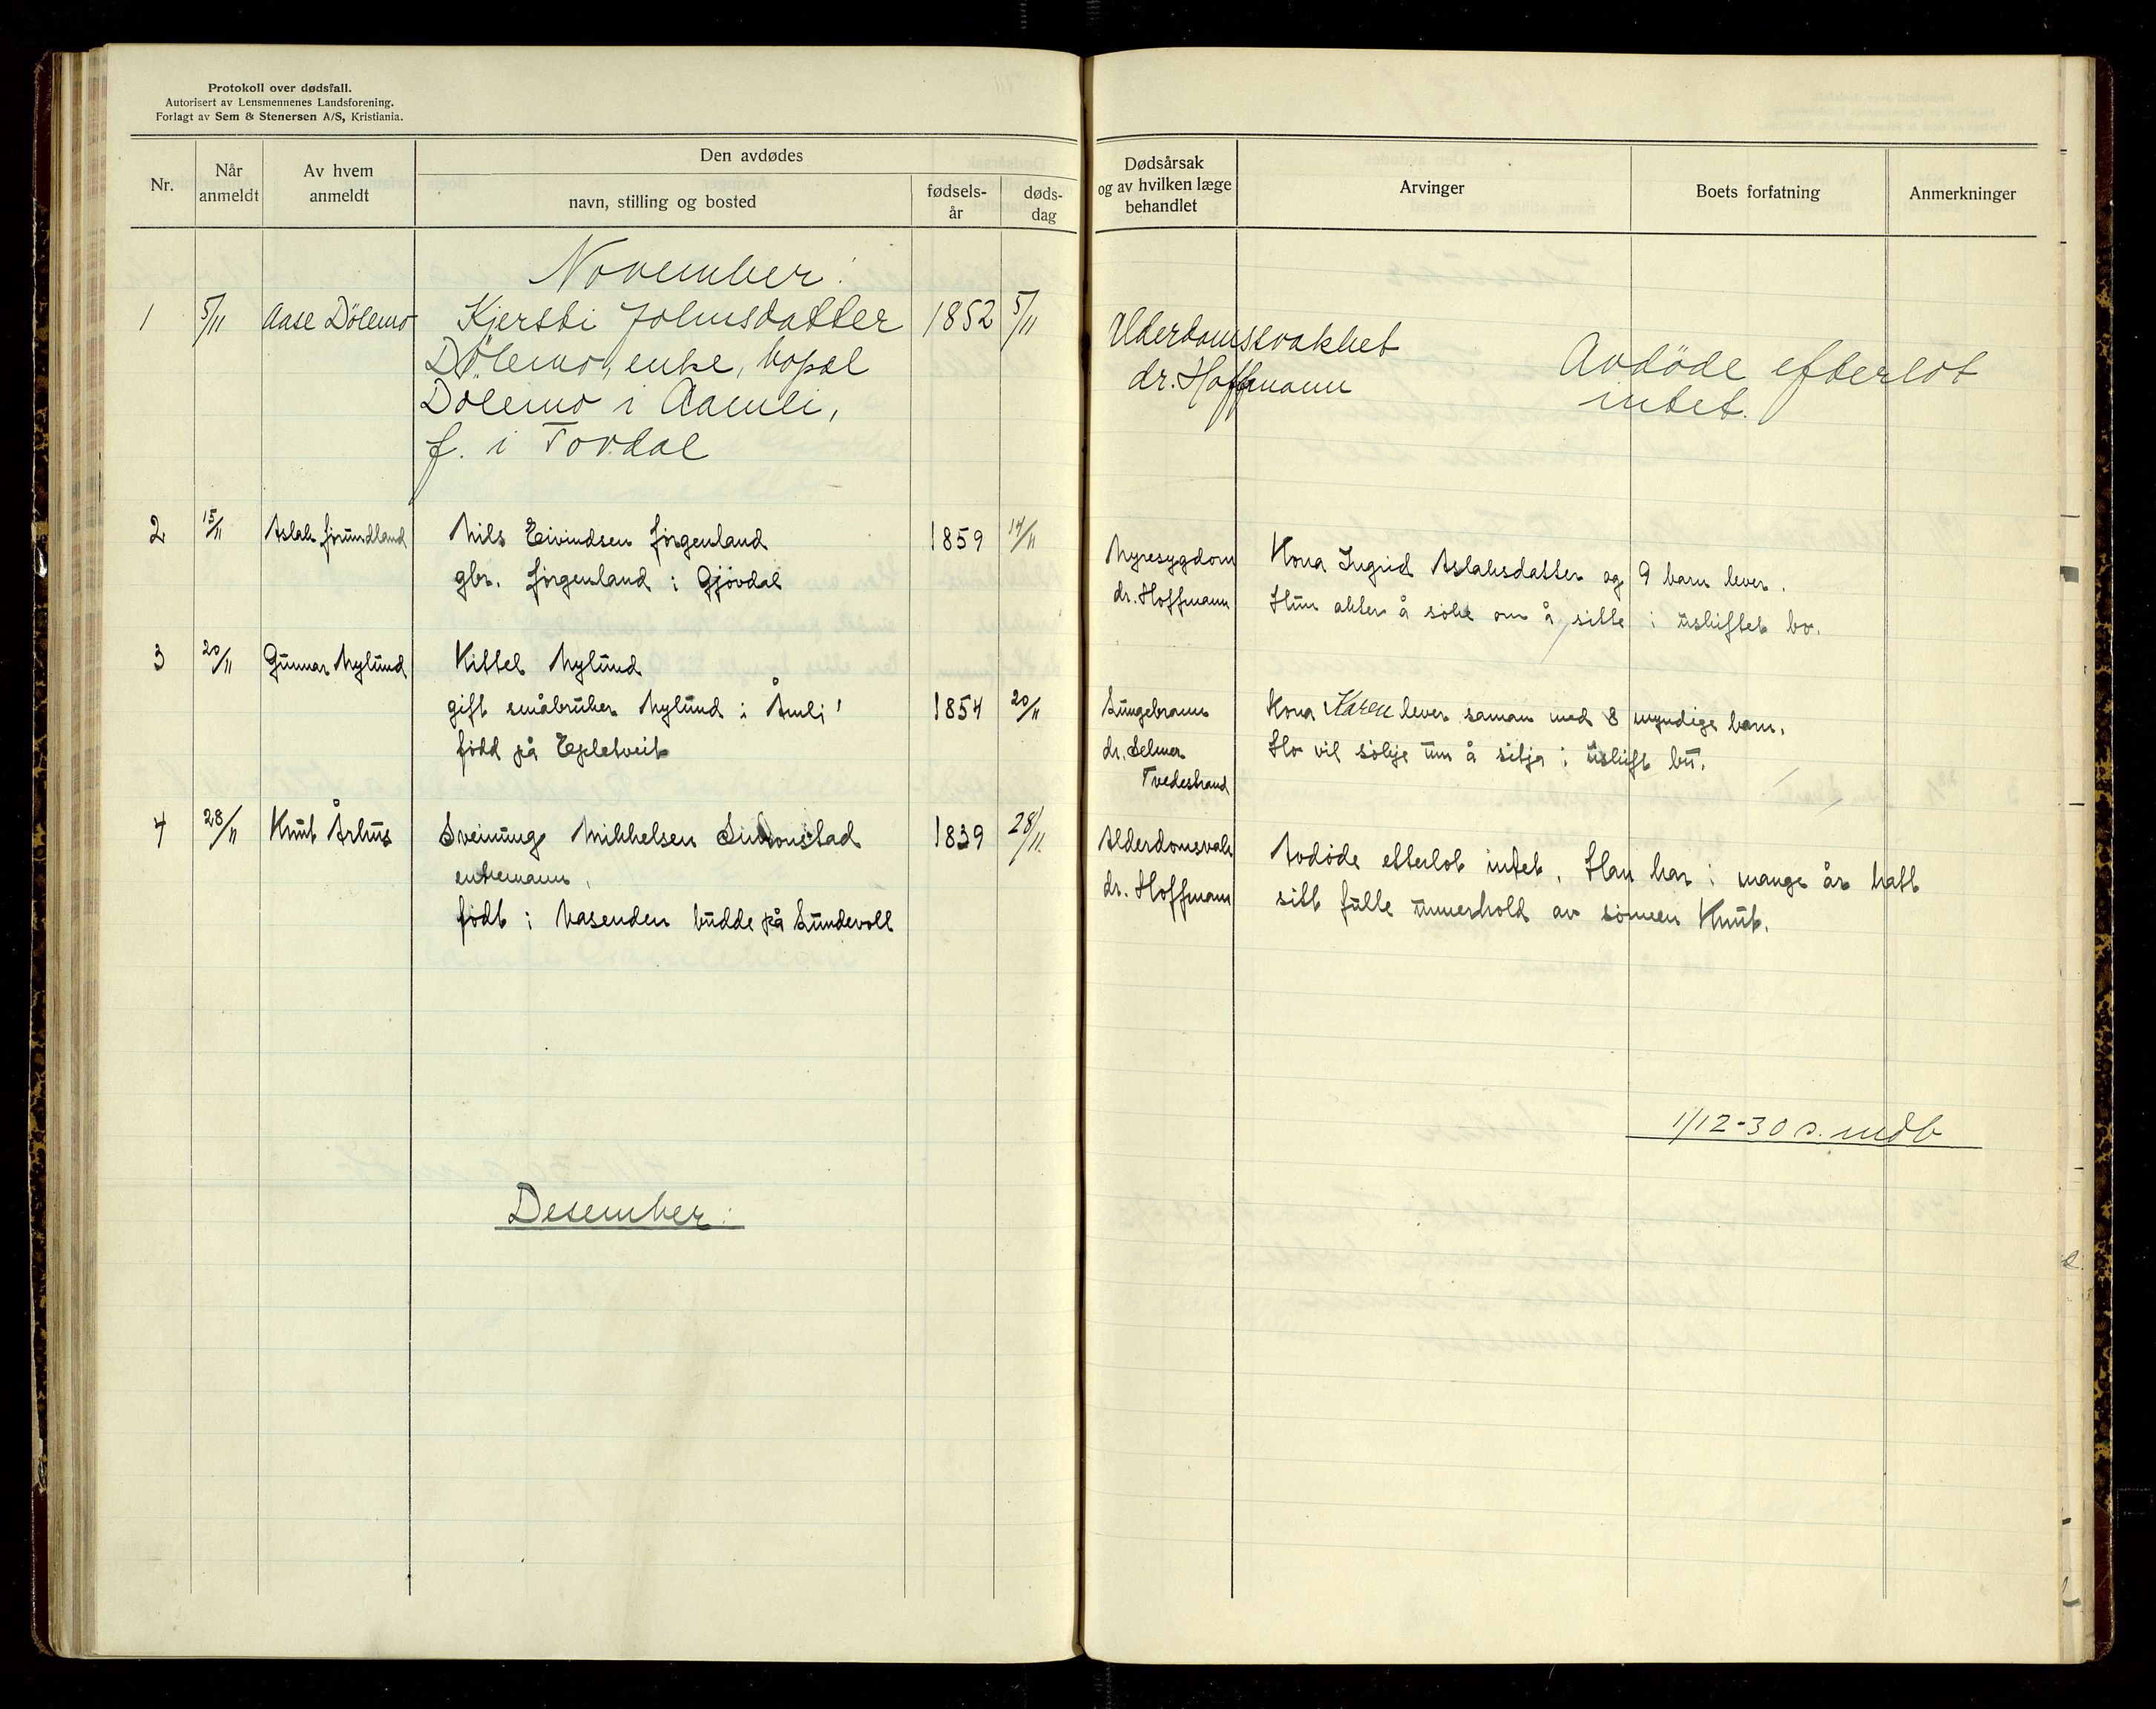 Protokoll over dødsfall.
Autorisert av Lensmennenes Landsforening.
Forlagt av Sem & Stenersen A/S, Kristiania.
Nr.
Når
anmeldt
Av hvem
anmeldt
Den avdødes
navn, stilling og bosted
fødsels-
år
døds-
dag
Dødsårsak
og av hvilken læge
behandlet
Arvinger
Boets forfatning
Anmerkninger
November:
1 5/11 Aase Dölemo Kjersti Johnsdatter 1852 5/11
Dölemo, enke, bopel
Dölemo i Aamli,
f. i Tovdal
Alderdomssvakhet
dr. Hoffmann
Avdöde efterlot
intet.
2 15/11 Aslak Jörundland Nils Eivindsen Jörgenland 1859 14/11
gbr. Jörgenland i Gjövdal
Nyresygdom
dr. Hoffmann
Kona Ingrid Aslaksdatter og 9 barn lever.
Hun akter å söke om å sitte i uskiftet bo.
3 20/11 Gunnar Nylund Kittel Nylund
gift småbruker Nylund i Åmli 1854 20/11
född på Epletveit
Lungebrann
dr. Selmer
Tvedestrand
Kona Karen lever saman med 8 myndige barn.
Ho vil sökje um å sitja i uskift bu.
4 28/11 Knut Århus Sveinung Mikkelsen Simonstad 1839 28/11
enkemann,
födt i Vasenden budde på Lundevoll
Alderdomsvak
dr. Hoffmann
Avdöde etterlot intet. Han har i mange år hatt
sitt fulle underhold av sönnen Knut.
1/12-30 s. mdb
Desember: